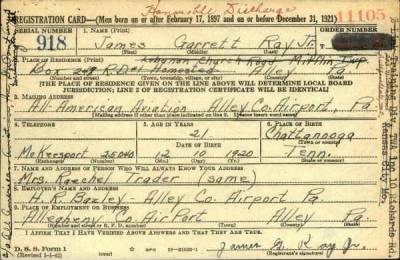 Honorable Discharge
REGISTRATION CARD—(Men born on or after February 17, 1897 and on or before December 31, 1921)
11105
SERIAL NUMBER
918
1. NAME (Print)
James Garrett Ray Jr.
(First) (Middle) (Last)
ORDER NUMBER
2. PLACE OF RESIDENCE (Print)
Lebanon Church Road Mifflin Twp.
Box R.D. Homestead Pa
(Number and street) (Town, township, village, or city) (County) (State)
[THE PLACE OF RESIDENCE GIVEN ON THE LINE ABOVE WILL DETERMINE LOCAL BOARD
JURISDICTION; LINE 2 OF REGISTRATION CERTIFICATE WILL BE IDENTICAL]
3. MAILING ADDRESS
All-American Aviation Alley Co. Airport, Pa.
4. TELEPHONE
5. AGE IN YEARS
21
6. PLACE OF BIRTH
Chattanooga
(Town or county)
DATE OF BIRTH
McKeesport 25040
12 10 1920
Tenn.
(Exchange) (Number)
(Mo.) (Day) (Yr.)
(State or country)
7. NAME AND ADDRESS OF PERSON WHO WILL ALWAYS KNOW YOUR ADDRESS
Mrs. Trader (same)
8. EMPLOYER'S NAME AND ADDRESS
H. R. Bazley Alley Co. Airport Pa.
9. PLACE OF EMPLOYMENT OR BUSINESS
Allegheny Co. Airport Alley Pa.
(Number and street or R. F. D. number) (Town) (County) (State)
I AFFIRM THAT I HAVE VERIFIED ABOVE ANSWERS AND THAT THEY ARE TRUE.
D. S. S. Form 1
(Revised 1-1-42)
(over)
James G. Ray Jr.
(Registrant's signature)